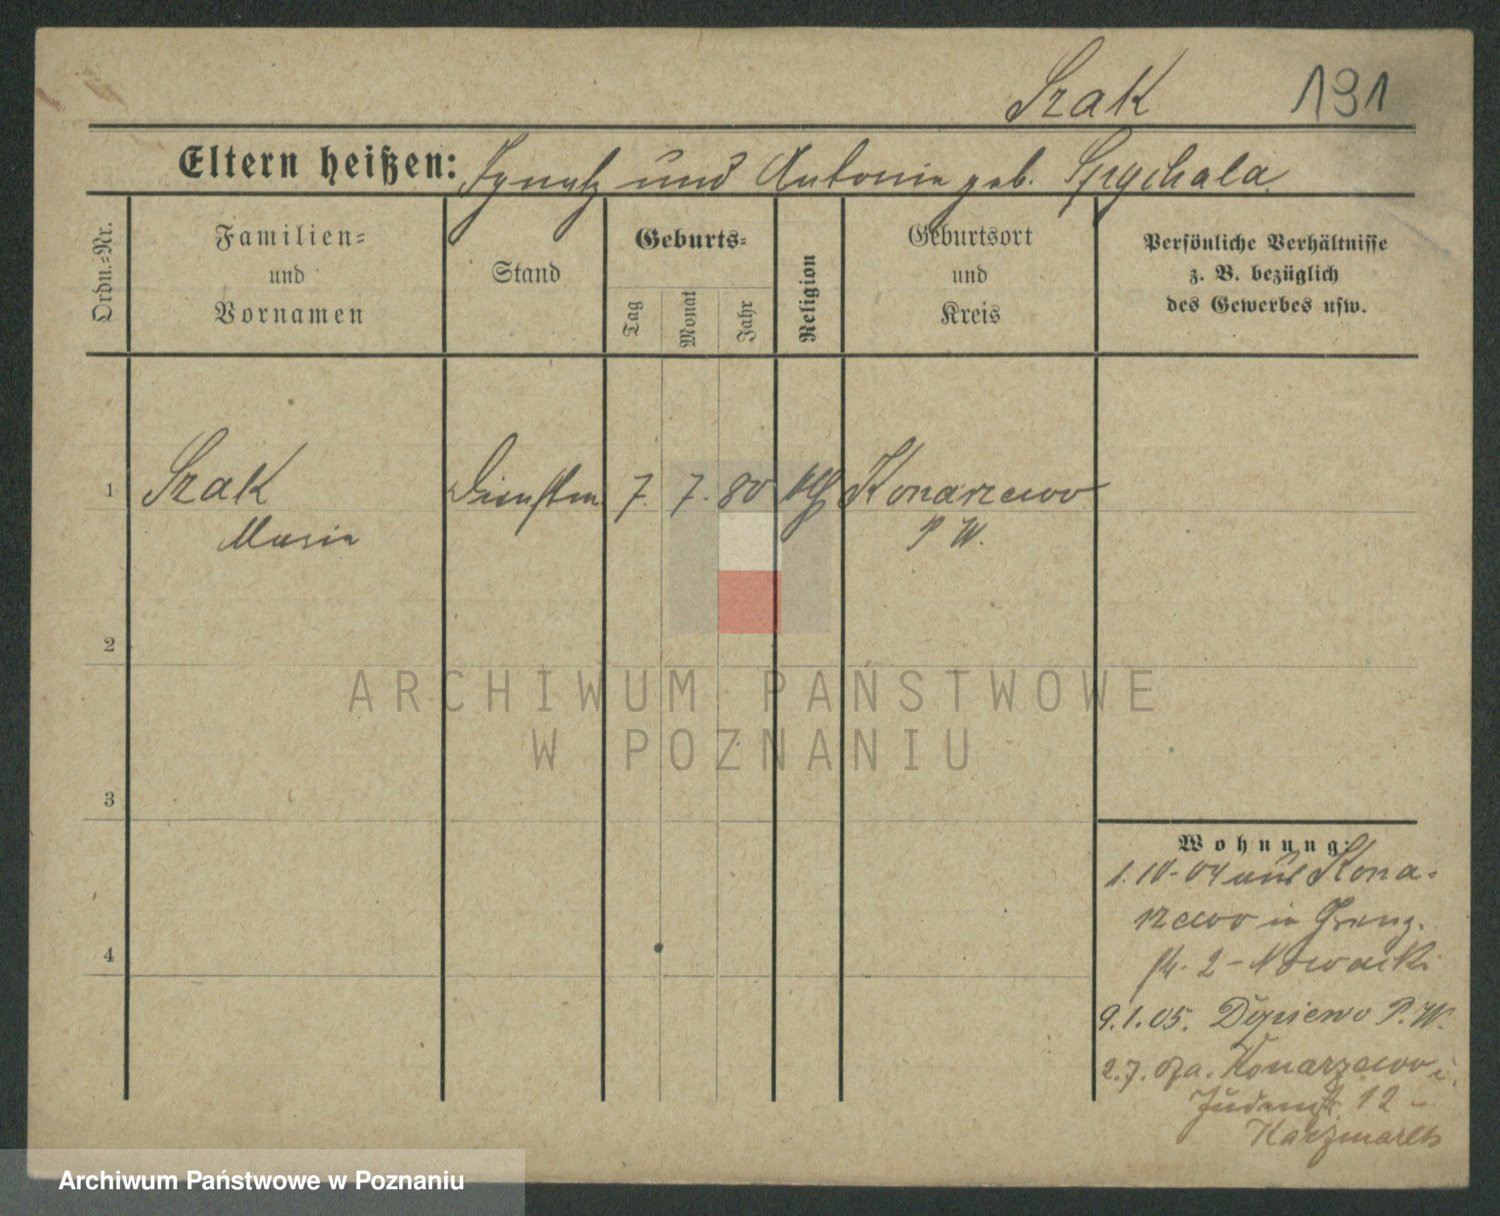 Szak 191
Eltern heißen: Ignatz und Antonie geb. Spychala
Ordn.=Nr.
Familien=
und
Vornamen
Stand
Geburts=
Tag
Monat
Jahr
Religion
Geburtsort
und
Kreis
Persönliche Verhältnisse
z. B. bezüglich
des Gewerbes usw.
1 Szak Dienstm. 7. 7. 80 kth Konarzewo
Maria P W.
2
ARCHIWUM PAŃSTWOWE
W POZNANIU
3
Wohnung:
1.10-04 aus Kona-
rzewo in
2 - Nowacki
4
9.1.05. Dopiewo P. W.
2.7. a. Konarzewo i.
Judenstr. 12 -
Kaczmarek
Archiwum Państwowe w Poznaniu